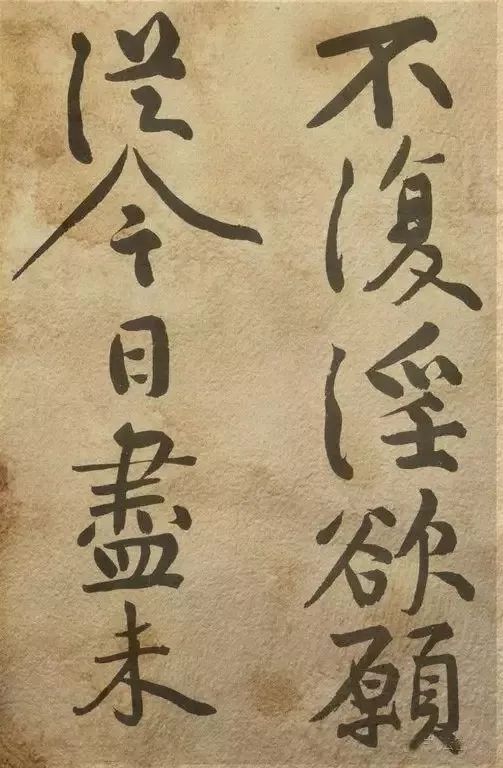 不復淫欲願
從今日盡未